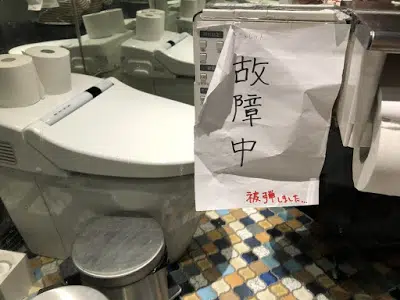 故障中
被弾しました…